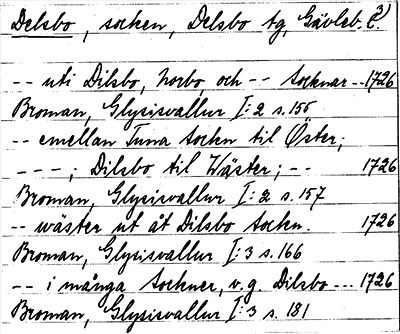 Delsbo, socken, Delsbo tg, Gävleb. l. 3)
-- uti Dilsbo, Norbo, och -- Socknar -- 1726
Broman, Glysisvallur I:2 s.155
-- emellan Tuna Sockn til Öster;
---; Dilsbo til Wäster; -- 1726
Broman, Glysisvallur I:2 s.157
-- wäster ut åt Dilsbo Sockn. 1726
Broman, Glysisvallur I:3 s.166
-- i många Sockner, v.g. Dilsbo --- 1726
Broman, Glysisvallur I:3 s.181